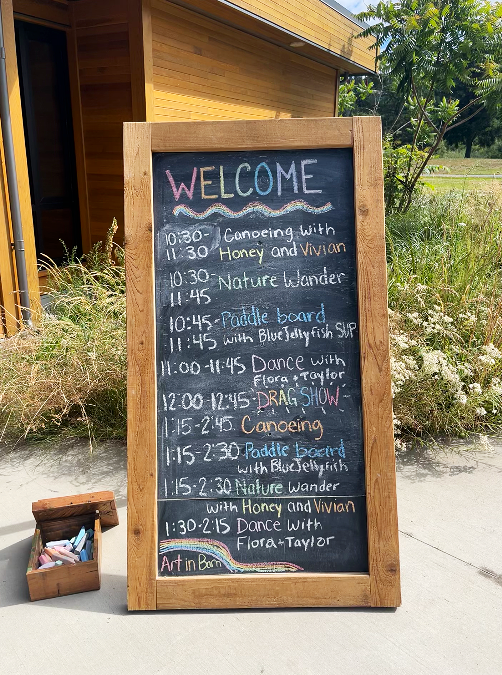 WELCOME
10:30- Canoeing with
11:30 Honey and Vivian
10:30- Nature Wander
11:45
10:45- Paddle board
11:45 with BlueJellyfish SUP
11:00-11:45 Dance with
Flora + Taylor
12:00-12:45 DRAG SHOW
1:15-2:45 Canoeing
1:15-2:30 Paddle board
with BlueJellyfish
1:15-2:30 Nature Wander
with Honey and Vivian
1:30-2:15 Dance with
Flora + Taylor
Art in Barn